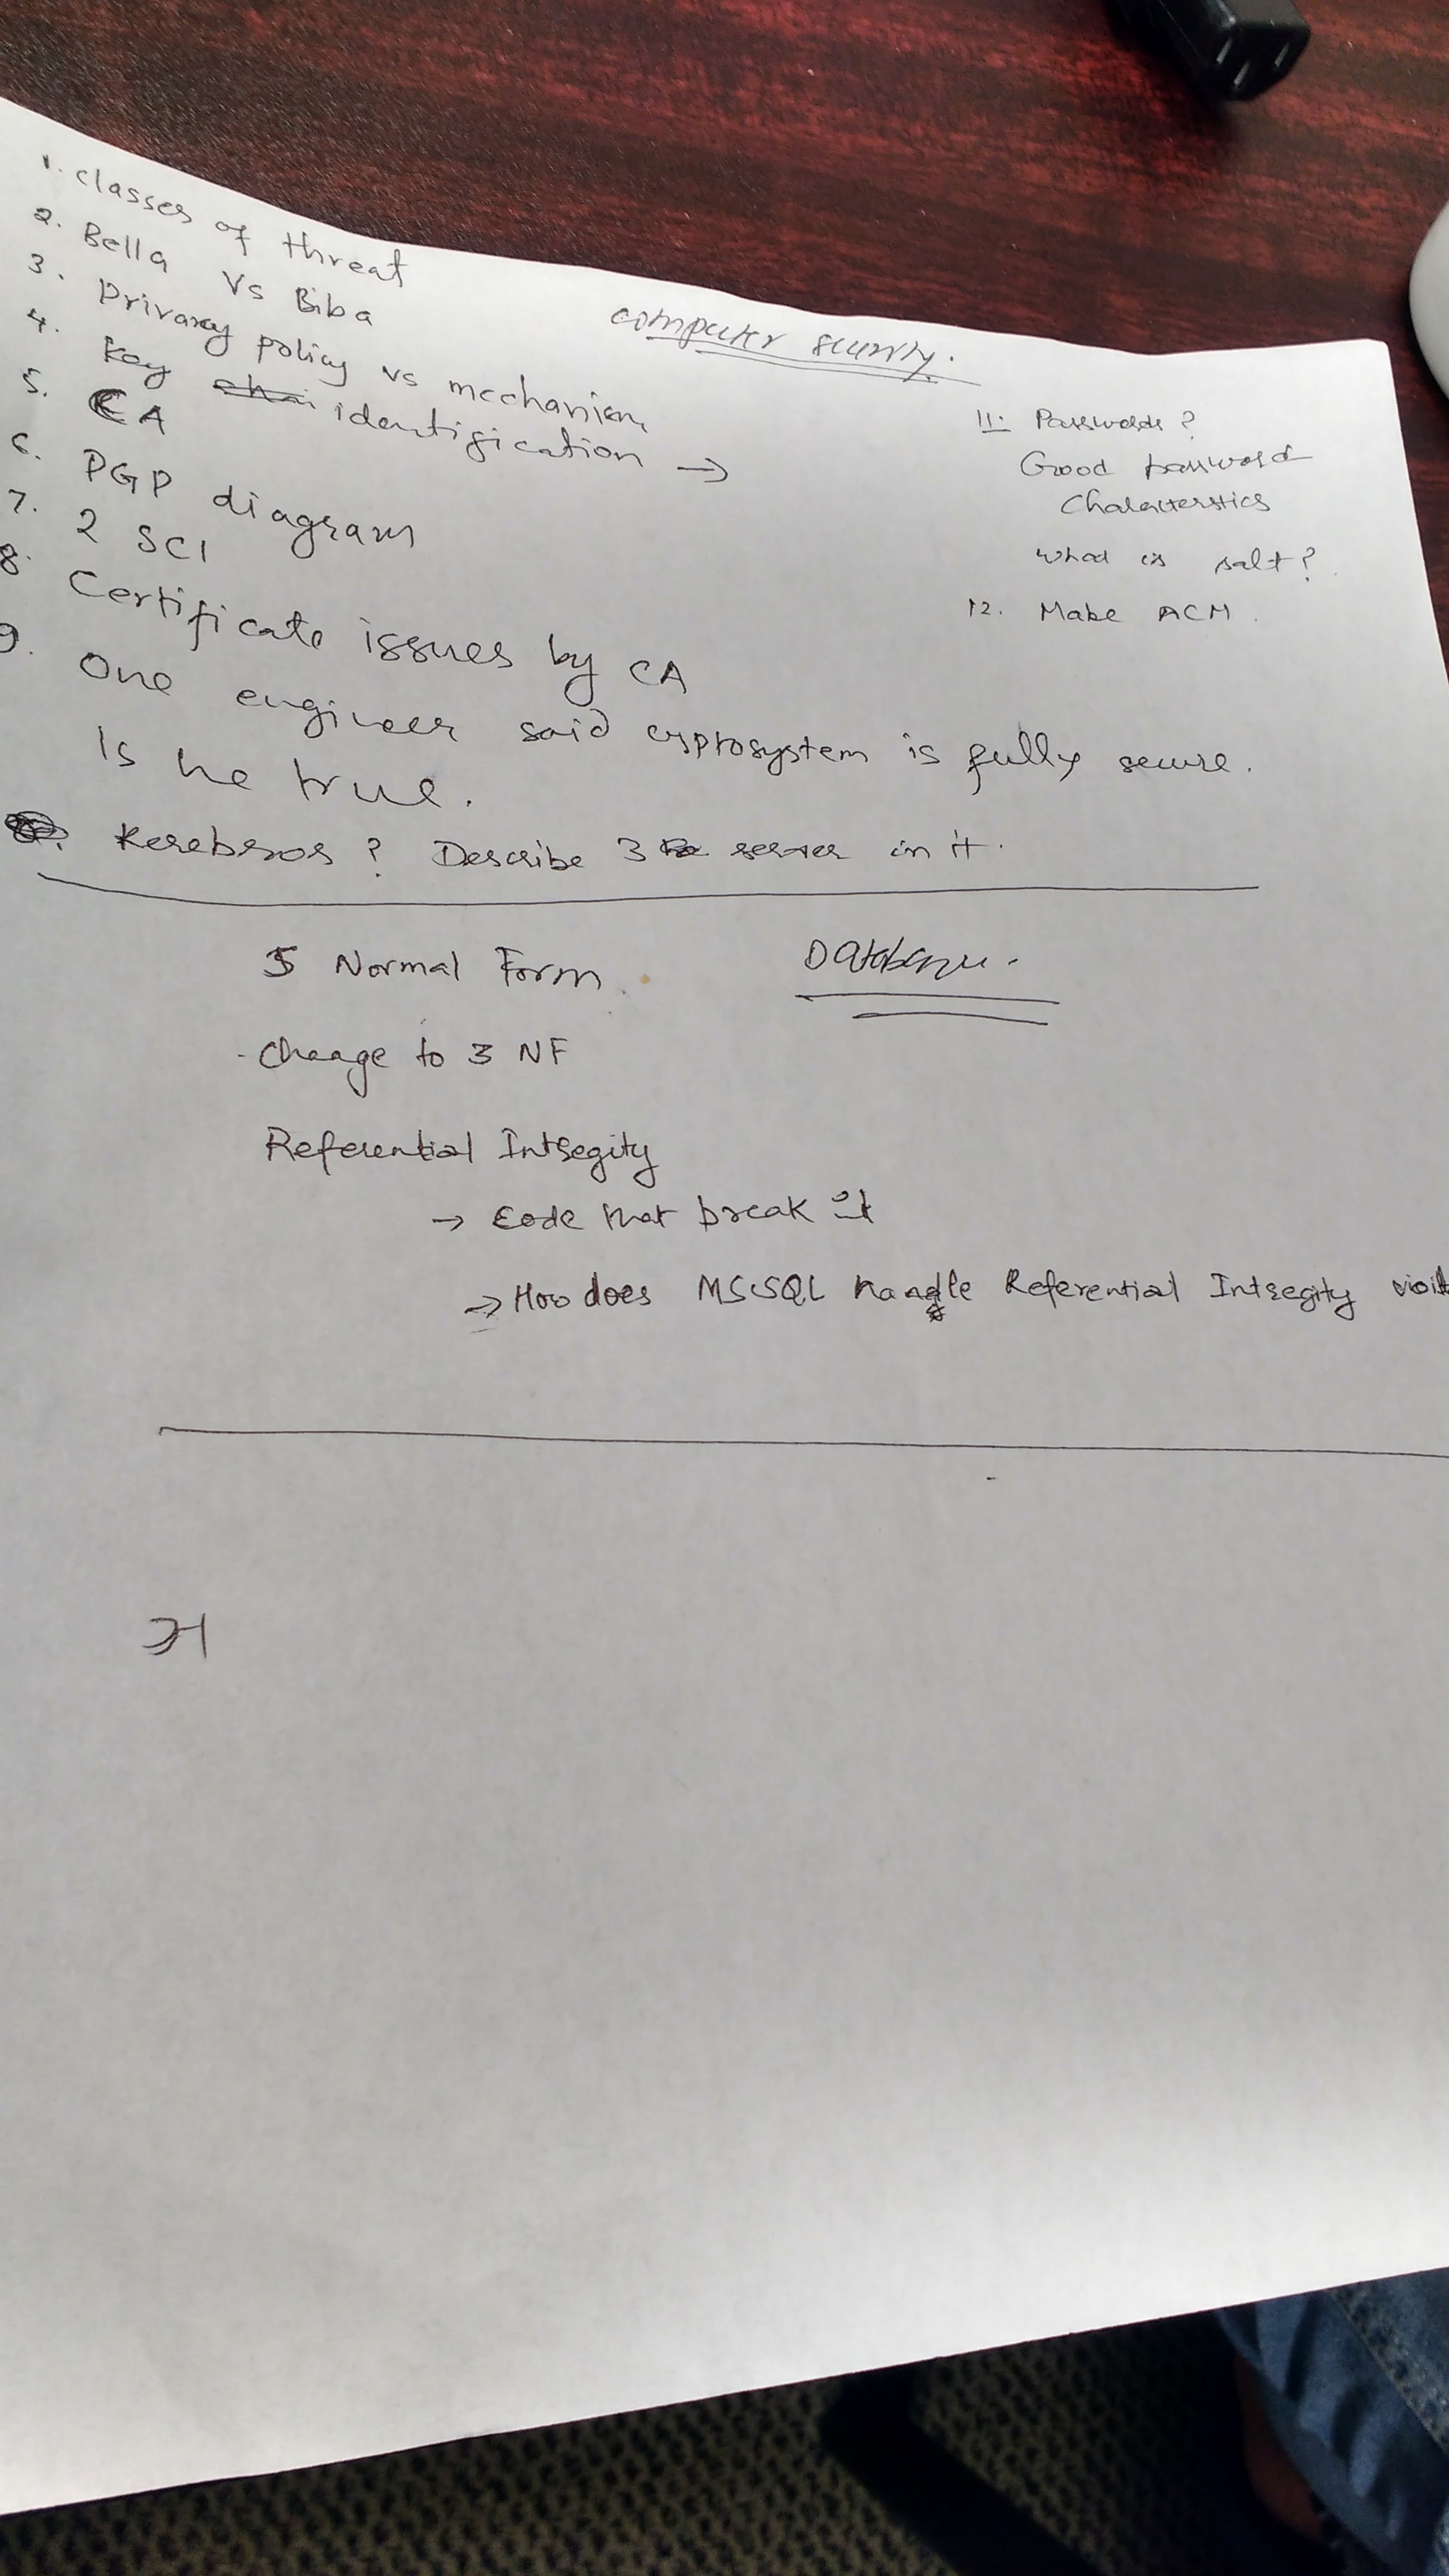 computer security.
1. classes of threat
2. Bella Vs Biba
3. Privacy policy vs mechanism
4. Key identification →
5. CA
6. PGP diagram
7. 2 SCI
8. Certificate issues by CA
9. One engineer said cryptosystem is fully secure.
Is he true.
Kerebros ? Describe 3 server in it.
11. Passwords ?
Good password
Characterstics
what is salt ?
12. Make ACM.
Database.
5 Normal Form
- Change to 3 NF
Referential Integrity
→ Code that break it
→ How does MSSQL handle Referential Integrity